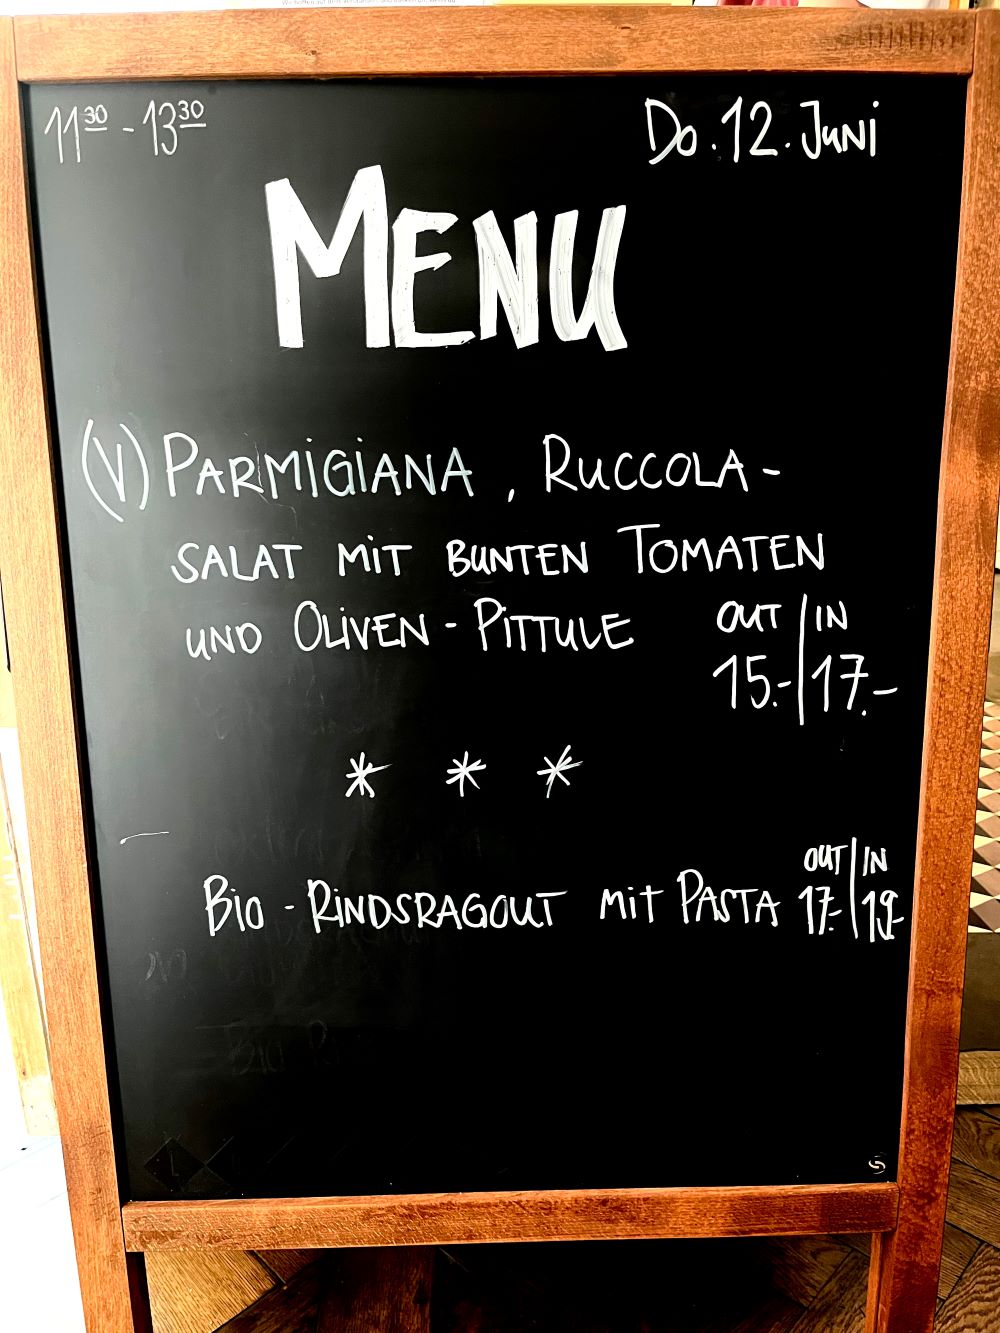 11³⁰ - 13³⁰ Do. 12. Juni
MENU
(V) PARMIGIANA, RUCCOLA-
SALAT MIT BUNTEN TOMATEN
UND OLIVEN - PITTULE OUT | IN
15.- | 17.-
* * *
OUT | IN
BIO - RINDSRAGOUT MIT PASTA 17.- | 19.-